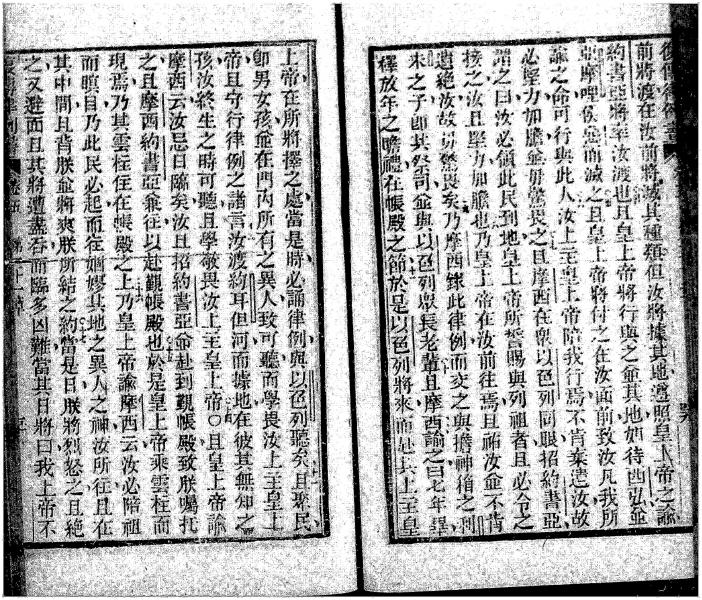 復傳律例書
前將渡在汝前將滅其種類但汝將據其地遵照皇上帝之諭
約書亞將率汝渡也且皇上帝將行與之並其地如待西弘並
亞摩哩侯惡而滅之且皇上帝將付之在汝面前致汝凡我所
諭之命可行與此人汝上主皇上帝陪我行焉不肯棄遺汝故
必堅力加膽並毋驚畏之且摩西在眾以色列同眼招約書亞
謂之曰汝必領此民到地皇上帝所誓賜與列祖者且必令之
接之汝且堅力加膽也乃皇上帝在汝前往焉且祐汝並不肯
遺絕汝故毋驚畏矣乃摩西錄此律例而交之與擔神箱之利
未之子卽其祭司並與以色列眾長老輩且摩西諭之曰七年畢
釋放年之瞻禮在帳殿之節於是以色列將來而赴其上主皇
上帝在所將擇之處當是時必誦律例與以色列聽矣且聚民
卽男女孩並在門內所有之異人致可聽而學畏汝上主皇上
帝且守行律例之諸言汝渡約耳但河而據地在彼其無知之
孩汝終生之時可聽且學敬畏汝上主皇上帝〇且皇上帝諭
摩西云汝忌日臨矣汝且招約書亞並赴到覲帳殿致朕囑托
之且摩西約書亞兼往以赴覲帳殿也於是皇上帝乘雲柱而
現焉乃其雲柱住在帳殿之上乃皇上帝諭摩西云汝必陪祖
而瞑目乃此民必起而從婟嫪其地之異人之神汝所往且在
其中間且背朕並將爽朕所結之約當是日朕將烈怒之且絕
之又避面且其將遭盡吞而臨多凶難當其日將曰我上帝不
卷五 第三十一章